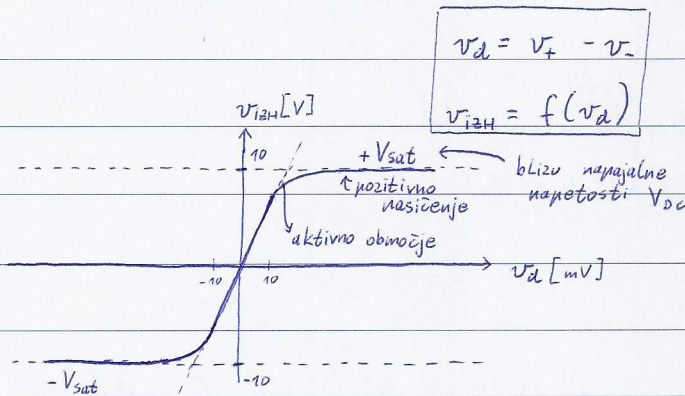 v_d = v_+ - v_-
v_IZH = f(v_d)
v_IZH [V]
10
+V_sat
blizu napajalne
napetosti V_DC
pozitivno
nasičenje
aktivno območje
-10
10
v_d [mV]
-V_sat
-10